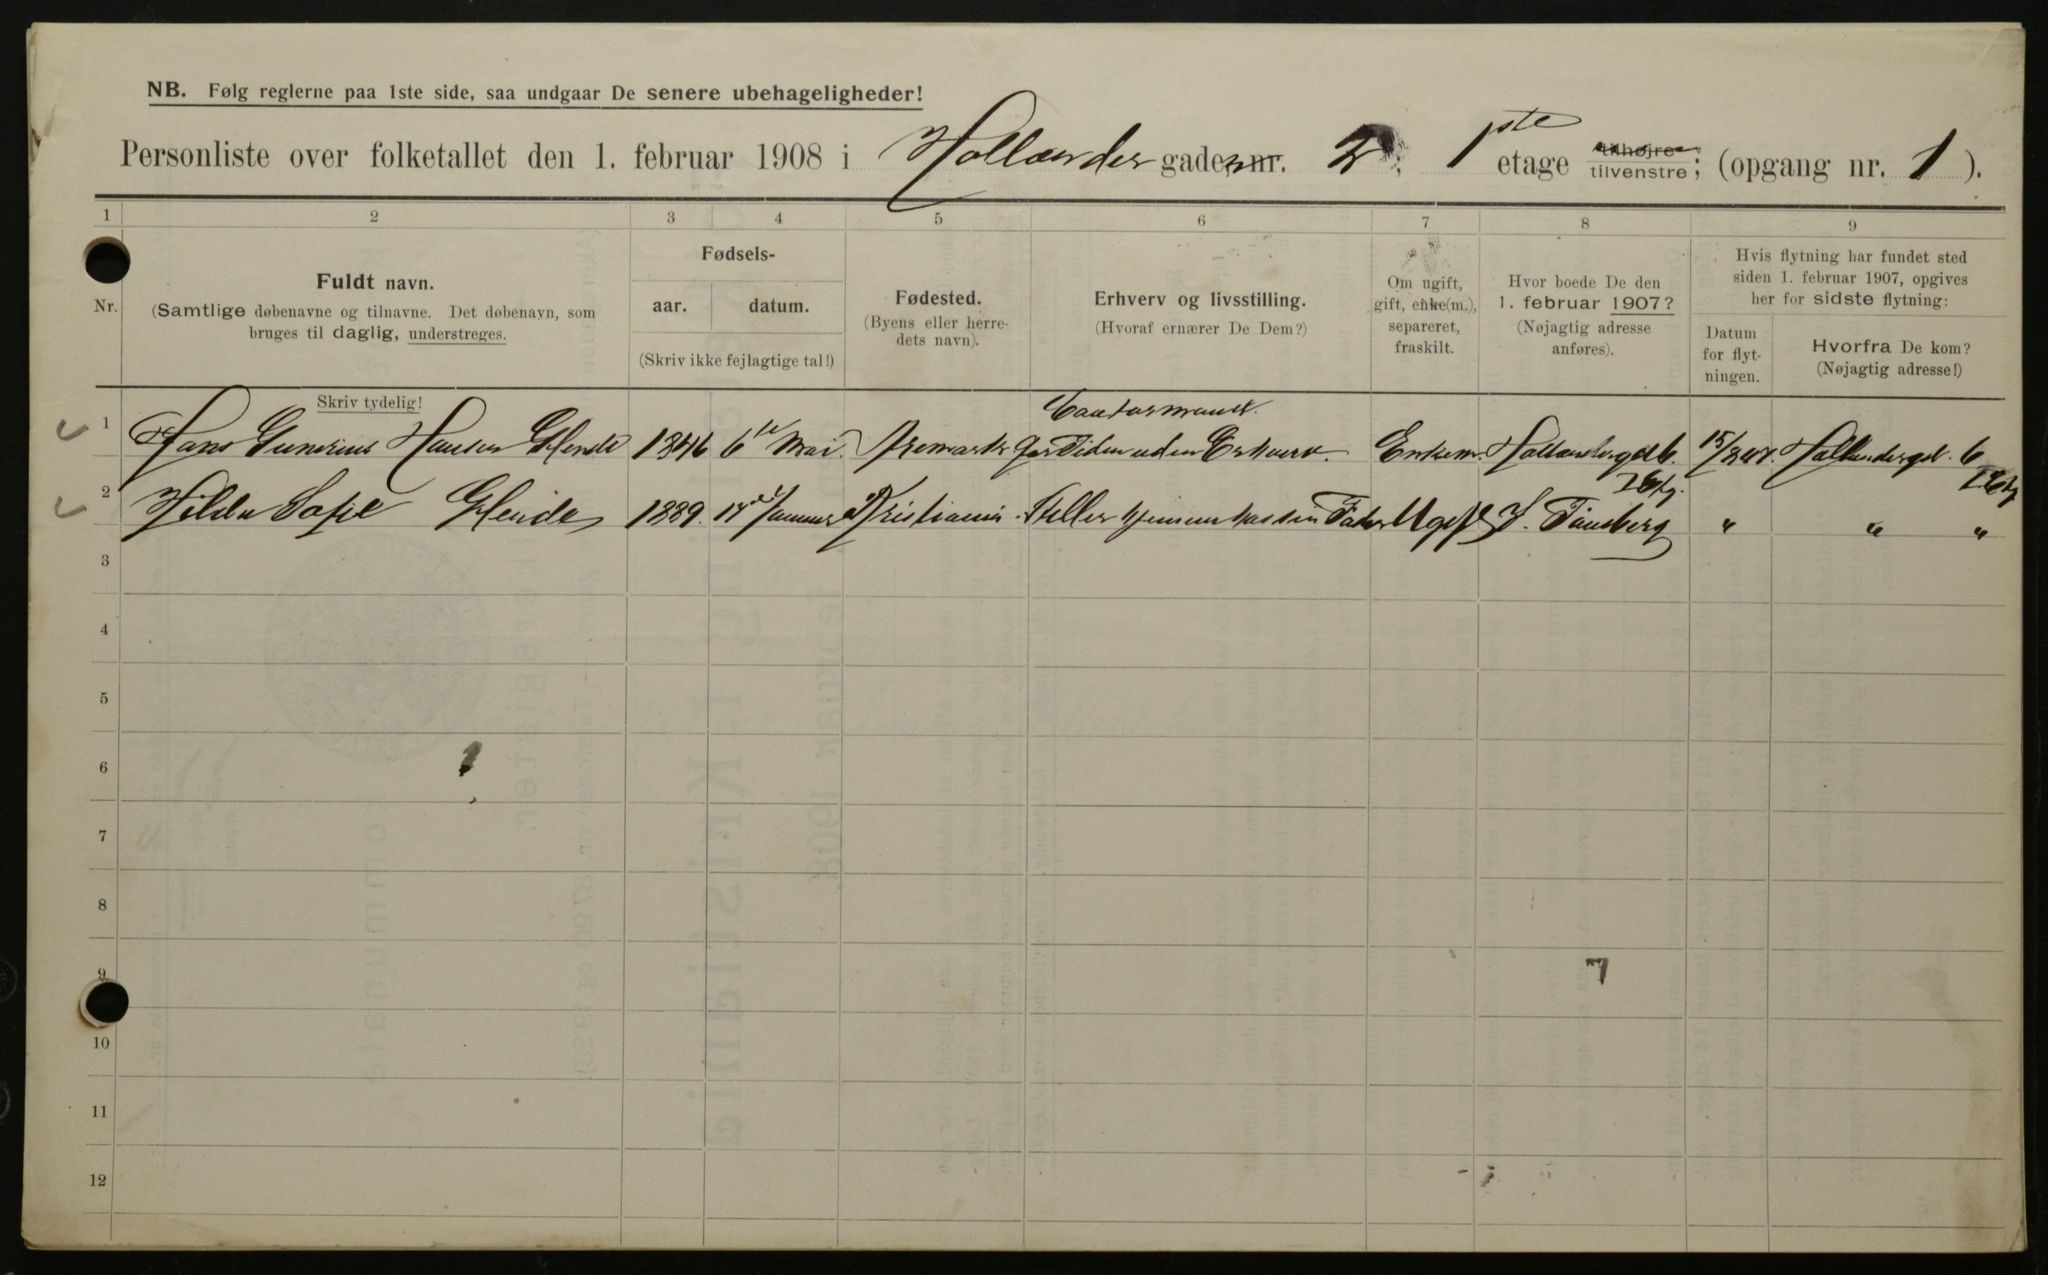 NB. Følg reglerne paa 1ste side, saa undgaar De senere ubehageligheder!
Personliste over folketallet den 1. februar 1908 i Hollænder gaden nr. 2; 1ste etage tilhøjre tilvenstre; (opgang nr. 1).
1 2 3 4 5 6 7 8 9
Nr.
Fuldt navn.
(Samtlige døbenavne og tilnavne. Det døbenavn, som
bruges til daglig, understreges.
Skriv tydelig!
Fødsels-
aar. datum.
(Skriv ikke fejlagtige tal!)
Fødested.
(Byens eller herre-
dets navn).
Erhverv og livsstilling.
(Hvoraf ernærer De Dem?)
Om ugift,
gift, enke(m.),
separeret,
fraskilt.
Hvor boede De den
1. februar 1907?
(Nøjagtig adresse
anføres).
Hvis flytning har fundet sted
siden 1. februar 1907, opgives
her for sidste flytning:
Datum
for flyt-
ningen.
Hvorfra De kom?
(Nøjagtig adresse!)
Contormand.
1 Hans Gunerius Hansen Glende 1846 6te Mai. Aremark For Tiden uden Erhverv. Enkem. Hollændergd 6. 15/ Hollændergd. 6
I Etg. I Etg
2 Hilda Sofie Glende 1889. Januar Kristiania. Steller hjemme hos sin Fader Ugift Tønsberg " " "
3
4
5
6
7
8
9
10
11
12